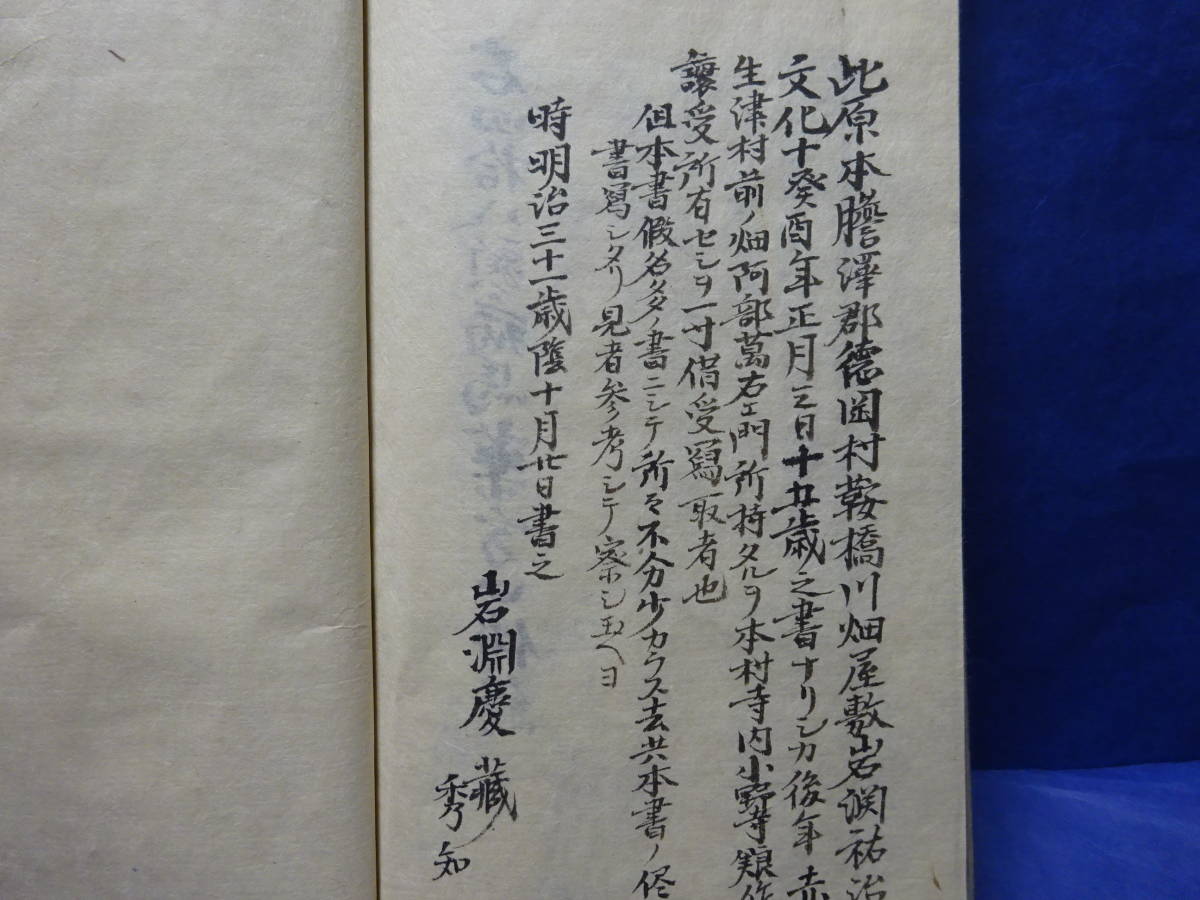 此原本膽澤郡徳岡村鞍橋川畑屋敷岩渕祐治
文化十癸酉年正月三日十五歳之書ナリシカ後年赤
生津村前ノ畑阿部萬右エ門所持タルヲ本村寺内小野寺
讓受所有セシヲ一寸借受寫取者也
但本書假名タノ書ニシテ所々不分少カラス去共本書ノ侭
書寫シタリ見者参考シテ察シ玉ヘヨ
時明治三十一歳陰十月廿日書之
岩淵慶藏
秀知